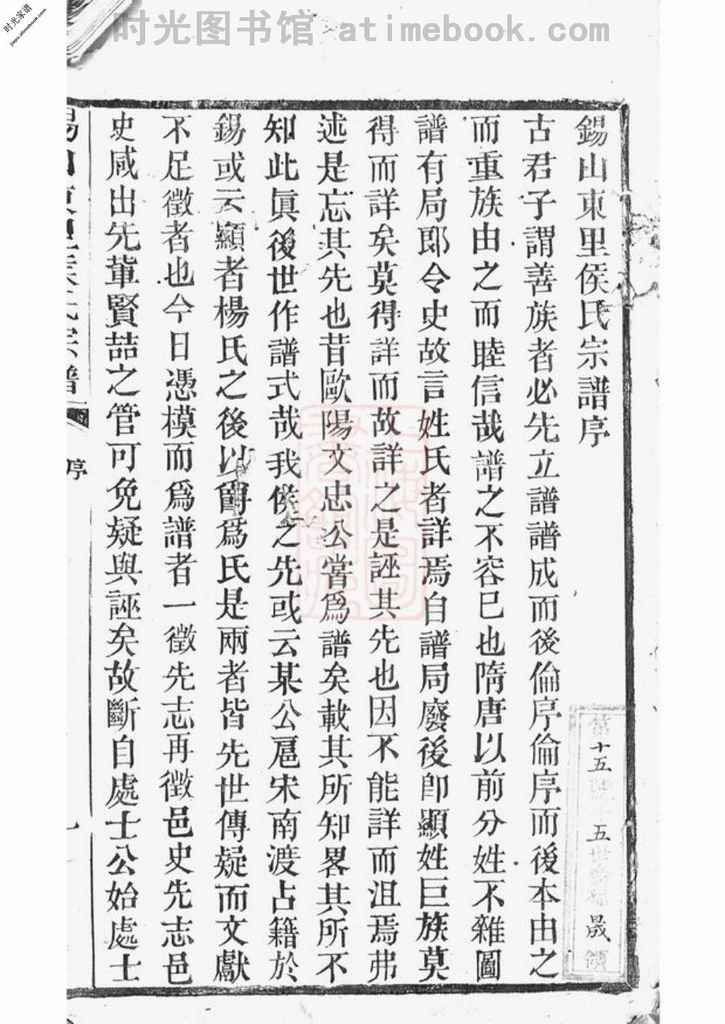 时光图书馆 atimebook.com
时光家谱
錫山東里侯氏宗譜序
古君子謂善族者必先立譜譜成而後倫序倫序而後本由之
而重族由之而睦信哉譜之不容已也隋唐以前分姓不雜圖
譜有局郎令史故言姓氏者詳焉自譜局廢後卽顯姓巨族莫
得而詳矣莫得詳而故詳之是誣其先也因不能詳而沮焉弗
述是忘其先也昔歐陽文忠公嘗爲譜矣載其所知畧其所不
知此眞後世作譜式哉我侯之先或云某公扈宋南渡占籍於
錫或云顯者楊氏之後以爵爲氏是兩者皆先世傳疑而文獻
不足徵者也今日憑模而爲譜者一徵先志再徵邑史先志邑
史咸出先輩賢喆之管可免疑與誣矣故斷自處士公始處士
錫山東里侯氏宗譜
序
一
十五
五世
晟領